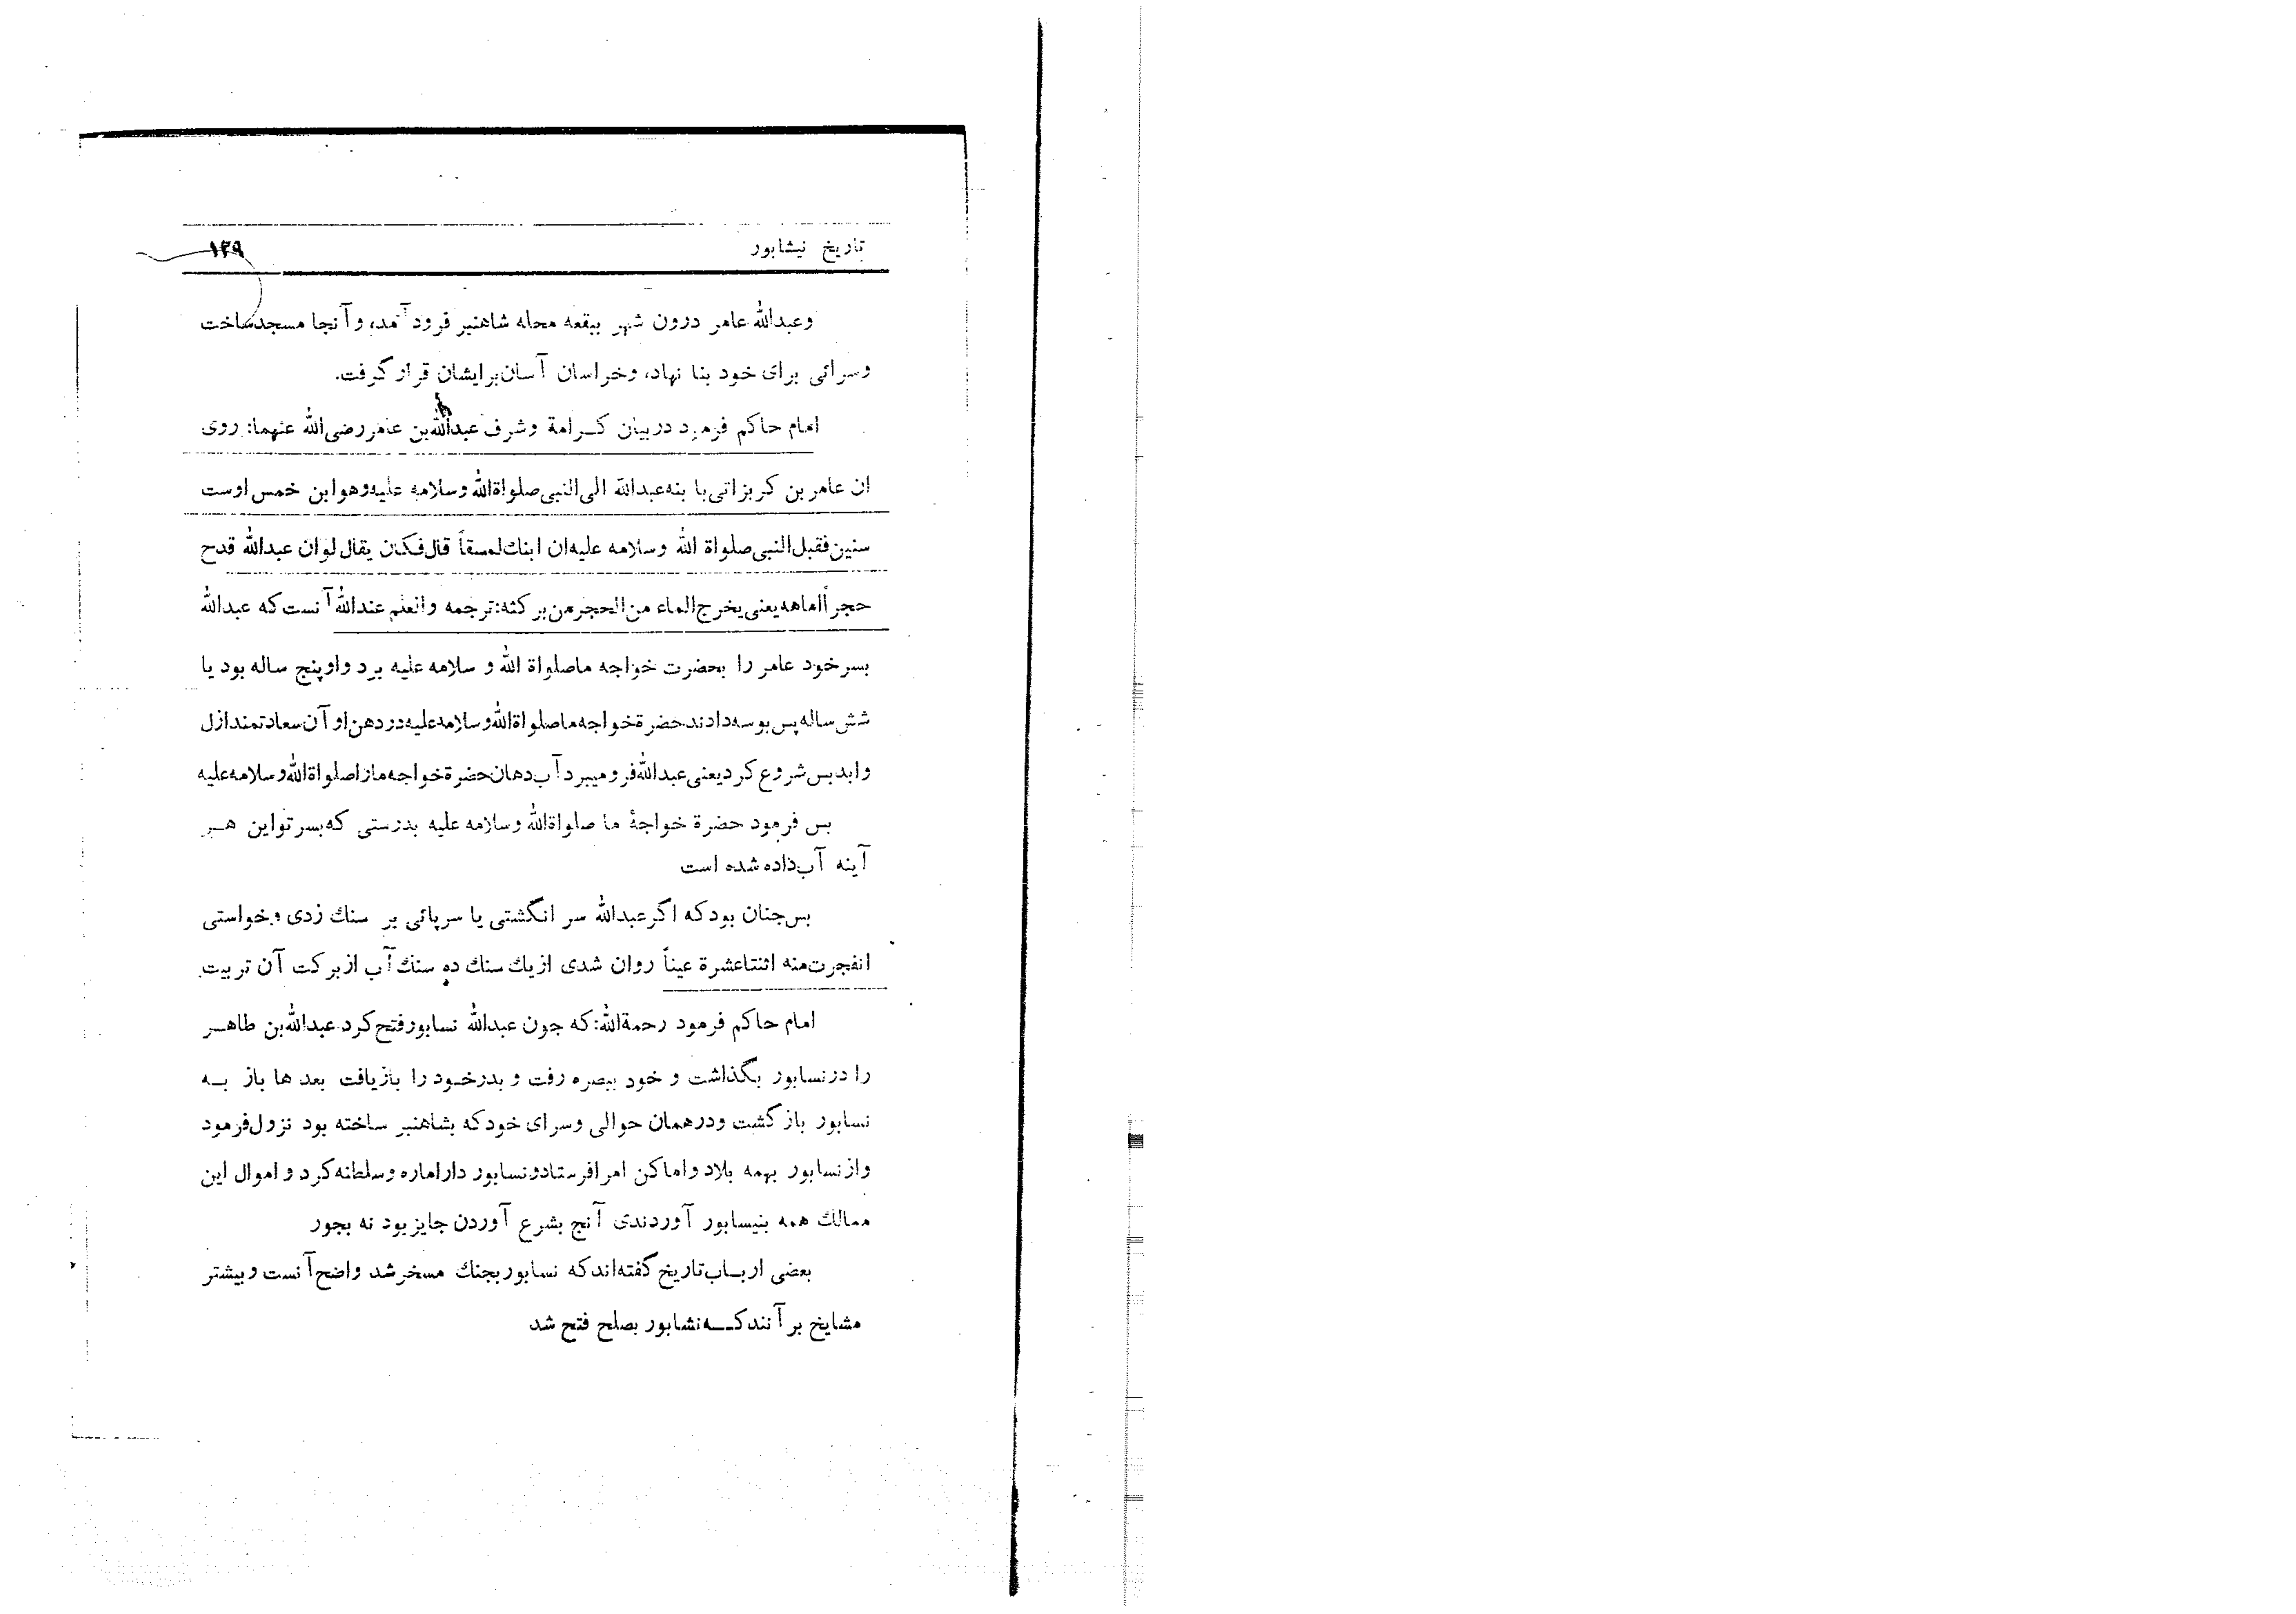 تاریخ نیشابور ۱۲۹
وعبدالله عامر درون شهر ببقعه محله شاهنبر فرود آمد، و آنجا مسجد ساخت
وسرائی برای خود بنا نهاد، وخراسان آسان برایشان قرار گرفت.
امام حاکم فرمود در بیان کـرامة وشرف عبدالله بن عامر رضی الله عنهما: روی
ان عامر بن کریز اتی با بنه عبدالله الی النبی صلواة الله وسلامه علیه وهو ابن خمس اوست
سنین فقبل النبی صلواة الله وسلامه علیه ان ابنك لمسقاً قال فکان یقال لوان عبدالله قدح
حجراً الماهه یعنی یخرج الماء من الحجر من بر کته: ترجمه والعلم عندالله آنست که عبدالله
بسر خود عامر را بحضرت خواجه ما صلواة الله و سلامه علیه برد واو پنج ساله بود یا
شش ساله پس بوسه دادند حضرة خواجه ما صلواة الله وسلامه علیه در دهن او آن سعادتمند ازل
وابد بس شروع کرد یعنی عبدالله فرو میبرد آب دهان حضرة خواجه ما را صلواة الله وسلامه علیه
بس فرمود حضرة خواجهٔ ما صلواة الله وسلامه علیه بدرستی که بسر تو این هـر
آینه آب داده شده است
بس جنان بود که اگر عبدالله سر انگشتی یا سرپائی بر سنك زدی وخواستی
انفجرت منه اثنتا عشرة عیناً روان شدی از یك سنك ده سنك آب از بر کت آن تربیت
امام حاکم فرمود رحمة الله: که جون عبدالله نسابور فتح کرد عبدالله بن طاهـر
را در نسابور بگذاشت و خود ببصره رفت و بدر خـود را بازیافت بعد ها باز بـه
نسابور باز گشت ودرهمان حوالی وسرای خود که بشاهنبر ساخته بود نزول فرمود
واز نسابور بهمه بلاد واماکن امرا فرستاد ونسابور دار اماره وسلطنه کرد و اموال این
ممالك همه بنیسابور آوردندی آنج بشرع آوردن جایز بود نه بجور
بعضی اربـاب تاریخ گفته اند که نسابور بجنك مسخر شد واضح آنست وبیشتر
مشایخ بر آنند کـــه نشابور بصلح فتح شد